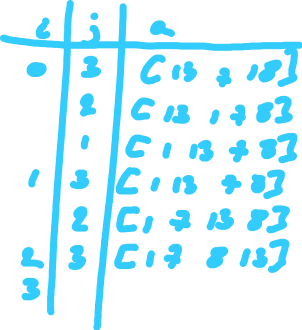 i j a
0 3 [ 13 7 1 8 ]
2 [ 13 1 7 8 ]
1 [ 1 13 7 8 ]
1 3 [ 1 13 7 8 ]
2 [ 1 7 13 8 ]
2 3 [ 1 7 8 13 ]
3